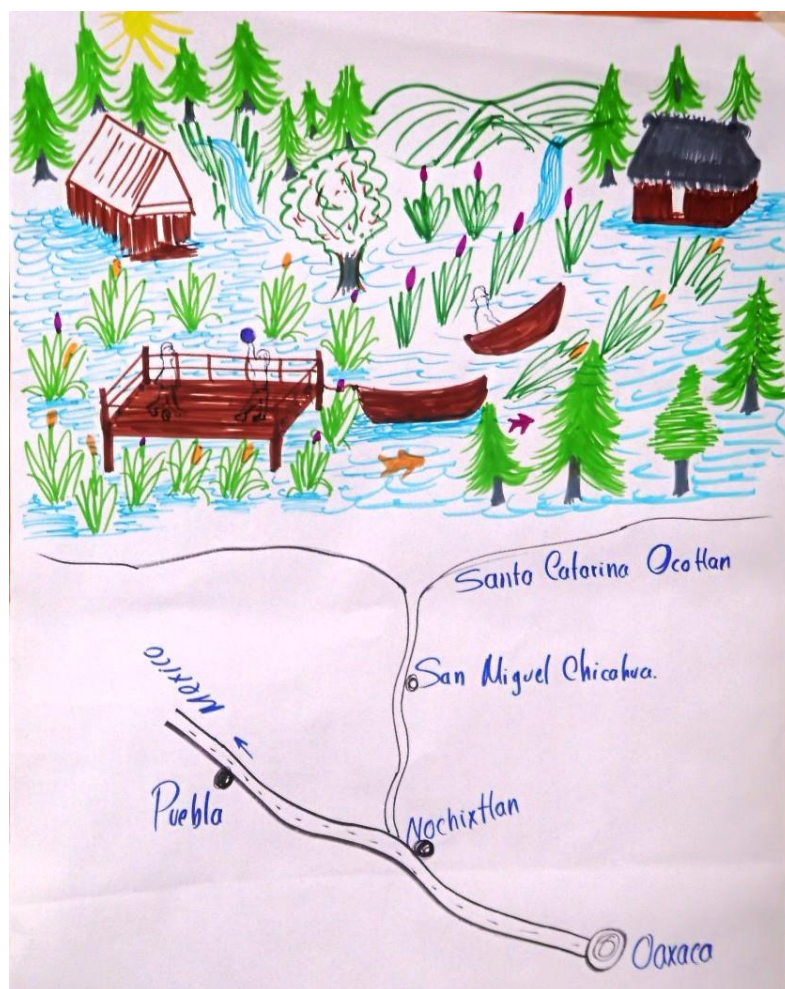 Santa Catarina Ocotlan
San Miguel Chicahua.
Mexico
Puebla
Nochixtlan
Oaxaca